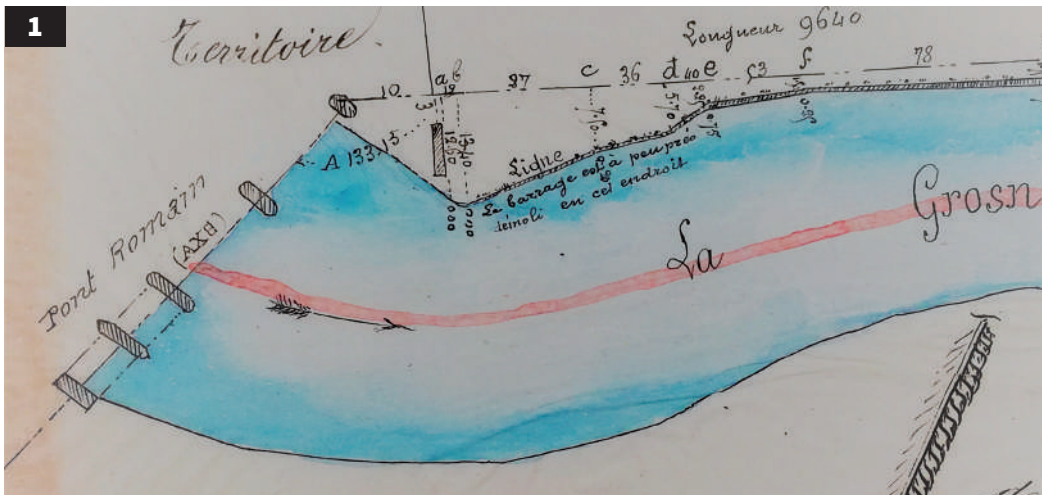 1
Territoire.
Longueur 9640
10
a
b
87
c
36
d
40
e
63
f
78
3
A 133.15
12.50
13.40
7.50
5.70
0.75
0.95
Ligne
Le barrage est à peu près
démoli en cet endroit
Pont Romain
(AXE)
La
Grosn